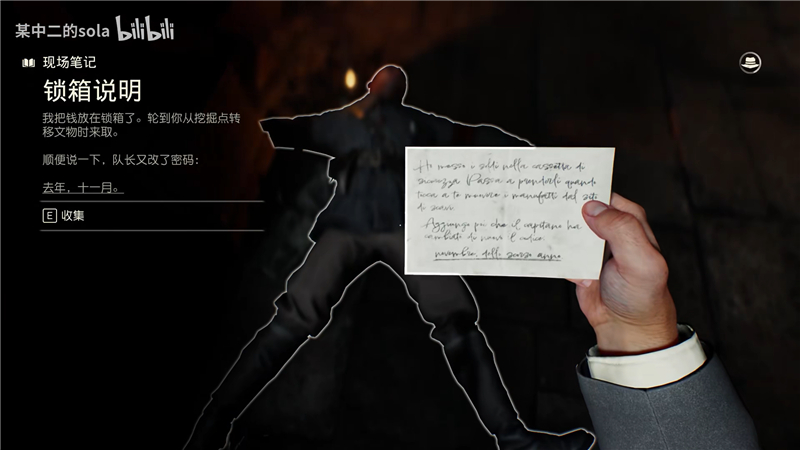 某中二的sola bilibili
现场笔记
锁箱说明
我把钱放在锁箱了。轮到你从挖掘点转
移文物时来取。
顺便说一下，队长又改了密码：
去年，十一月。
E 收集
Ho messo i soldi nella cassetta di
sicurezza. Passa a prenderli quando
tocca a te muovere i manufatti dal sito
di scavo.
Aggiungo poi che il capitano ha
cambiato di nuovo il codice:
novembre dello scorso anno